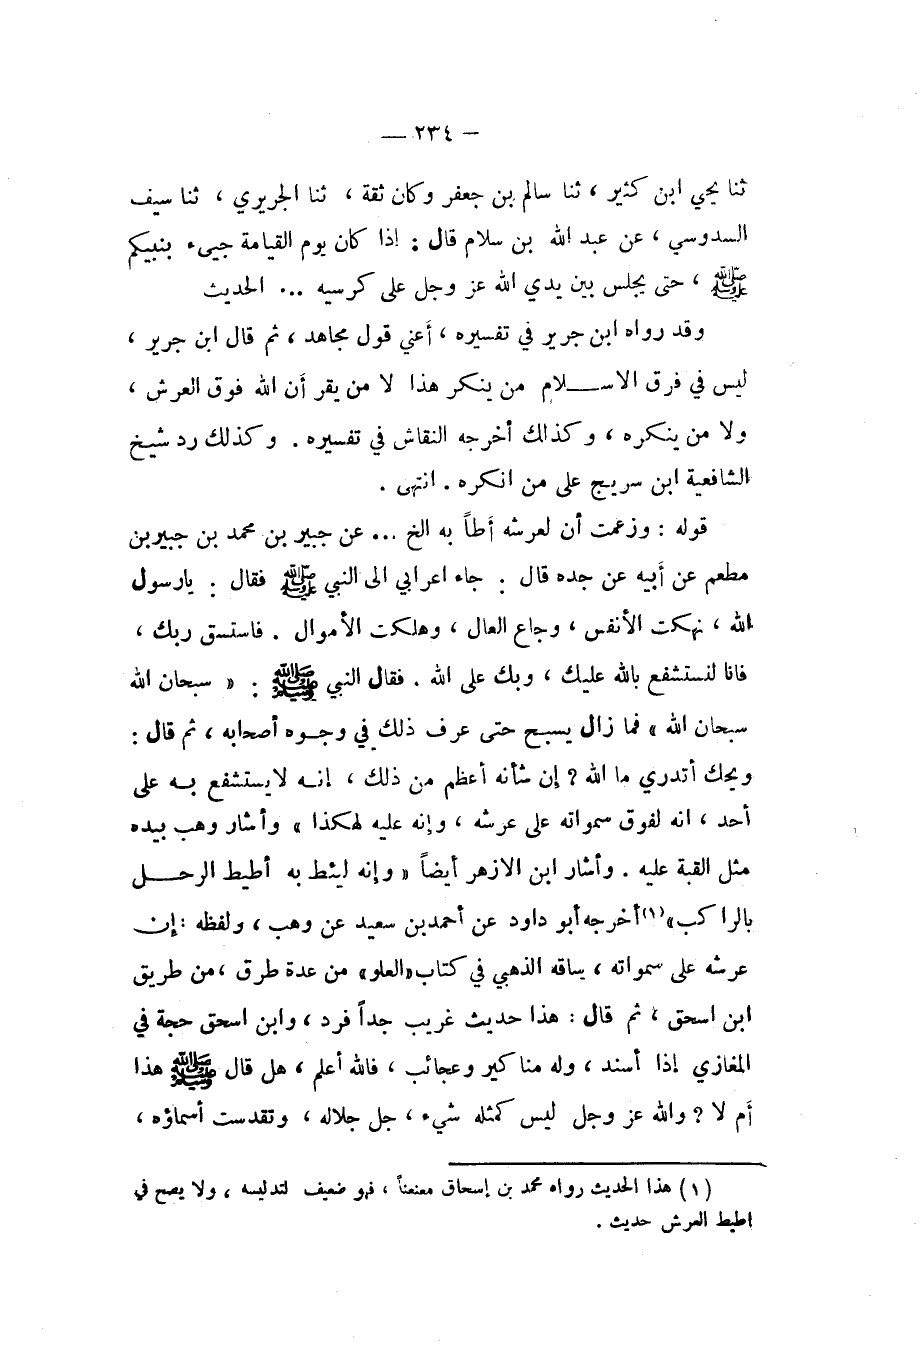 — ٢٣٤ —
ثنا يحي ابن كثير ، ثنا سالم بن جعفر وكان ثقة ، ثنا الجريري ، ثنا سيف
السدوسي ، عن عبد الله بن سلام قال : إذا كان يوم القيامة جيء بنبيكم
ﷺ ، حتى يجلس بين يدي الله عز وجل على كرسيه ... الحديث
وقد رواه ابن جرير في تفسيره ، أعني قول مجاهد ، ثم قال ابن جرير ،
ليس في فرق الاسـلام من ينكر هذا لا من يقر أن الله فوق العرش ،
ولا من ينكره ، وكذالك أخرجه النقاش في تفسيره . وكذلك رد شيخ
الشافعية ابن سريج على من انكره . انتهى .
قوله : وزعمت أن لعرشه أطاً به الخ ... عن جبير بن محمد بن جبيربن
مطعم عن أبيه عن جده قال : جاء اعرابي الى النبي ﷺ فقال : يارسول
الله ، نهكت الأنفس ، وجاع العال ، وهلكت الأموال . فاستسق ربك ،
فانا لنستشفع بالله عليك ، وبك على الله . فقال النبي ﷺ : « سبحان الله
سبحان الله » فما زال يسبح حتى عرف ذلك في وجـوه أصحابه ، ثم قال :
ويحك أتدري ما الله ? إن شأنه أعظم من ذلك ، إنـه لايستشفع بـه على
أحد ، انه لفوق سمواته على عرشه ، وإنه عليه لهكذا » وأشار وهب بيده
مثل القبة عليه . وأشار ابن الازهر أيضاً « وإنه ليئط به أطيط الرحـل
بالراكب»(١)أخرجه أبو داود عن أحمدبن سعيد عن وهب ، ولفظه : إن
عرشه على سمواته ، ساقه الذهبي في كتاب«العلو» من عدة طرق ،من طريق
ابن اسحق ، ثم قال : هذا حديث غريب جداً فرد ، وابن اسحق حجة في
المغازي إذا أسند ، وله مناكير وعجائب ، فالله أعلم ، هل قال ﷺ هذا
أم لا ? والله عز وجل ليس كمثله شيء ، جل جلاله ، وتقدست أسماؤه ،
(١) هذا الحديث رواه محمد بن إسحاق معنعناً ، فهو ضعيف لتدليسه ، ولا يصح في
اطيط العرش حديث .